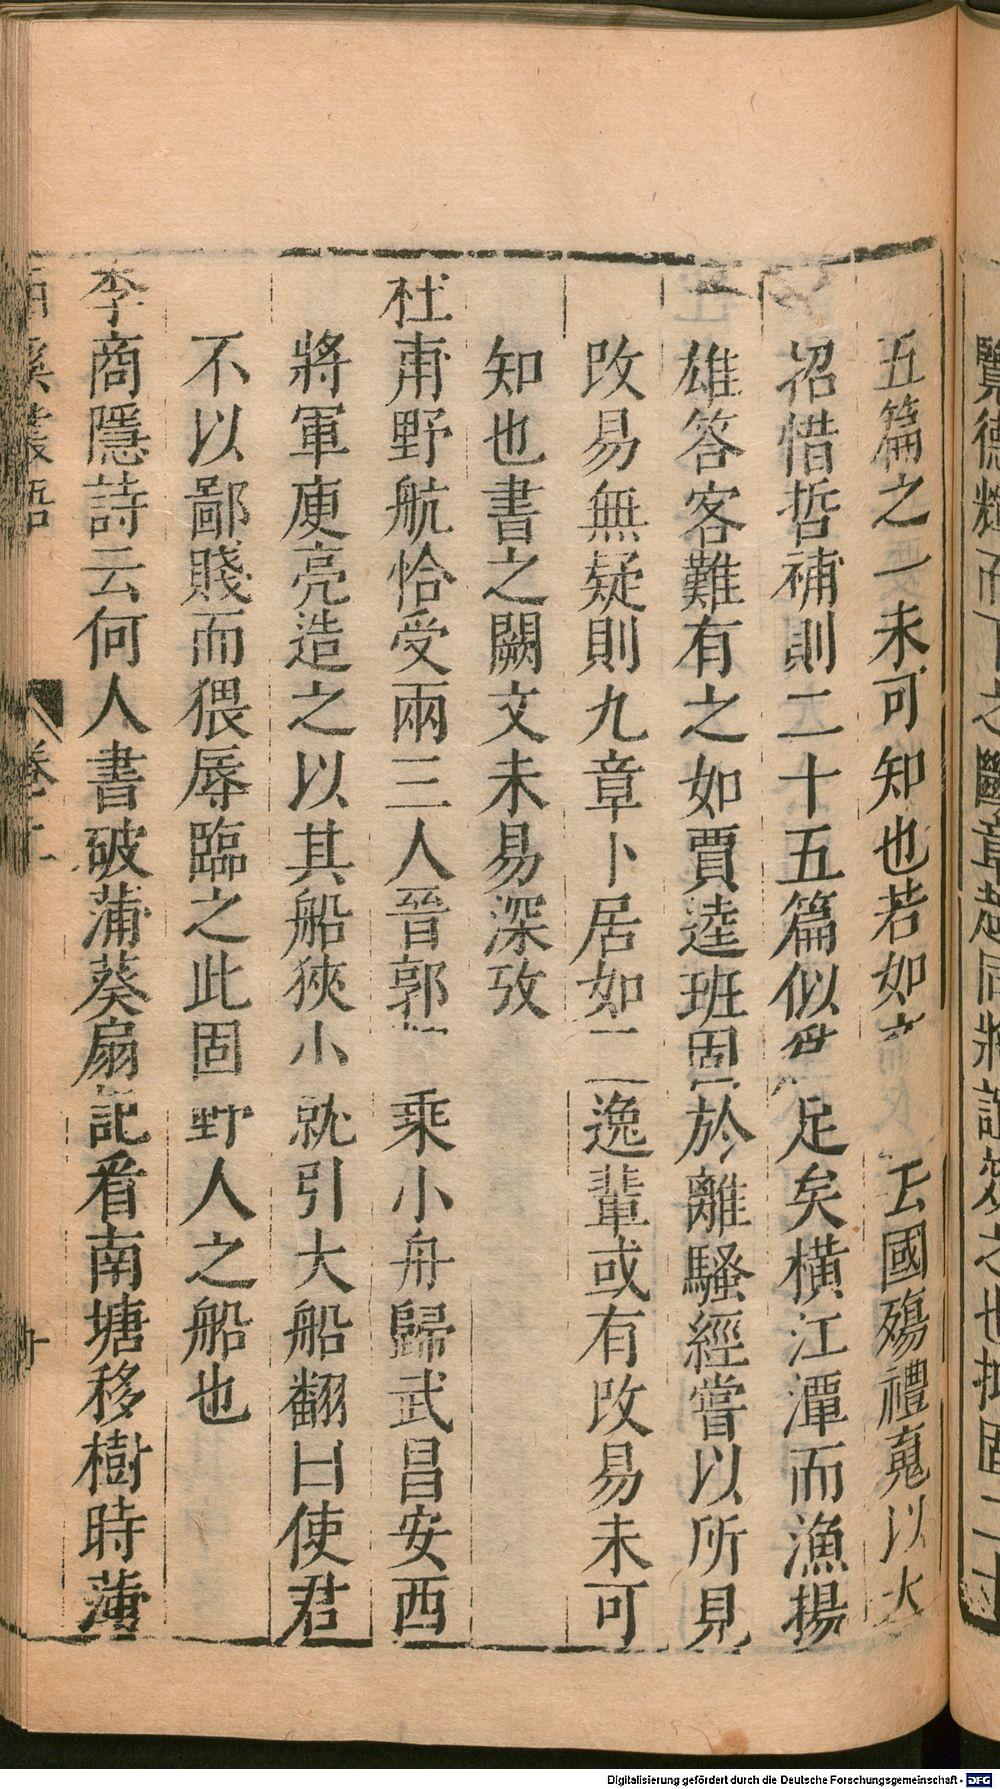 五篇之一未可知也若如　　云國殤禮䰟以大
招惜哲補則二十五篇似　足矣橫江潭而漁揚
雄答客難有之如賈逵班固於離騷經嘗以所見
改易無疑則九章卜居如　逸輩或有改易未可
知也書之闕文未易深攷
杜甫野航恰受兩三人晉郭　乘小舟歸武昌安西
將軍庾亮造之以其船狹小就引大船翻曰使君
不以鄙賤而猥辱臨之此固野人之船也
李商隱詩云何人書破蒲葵扇記看南塘移樹時薄
卷十
覽德輝而下之斷章趙同將說賦之也
Digitalisierung gefördert durch die Deutsche Forschungsgemeinschaft - DFG